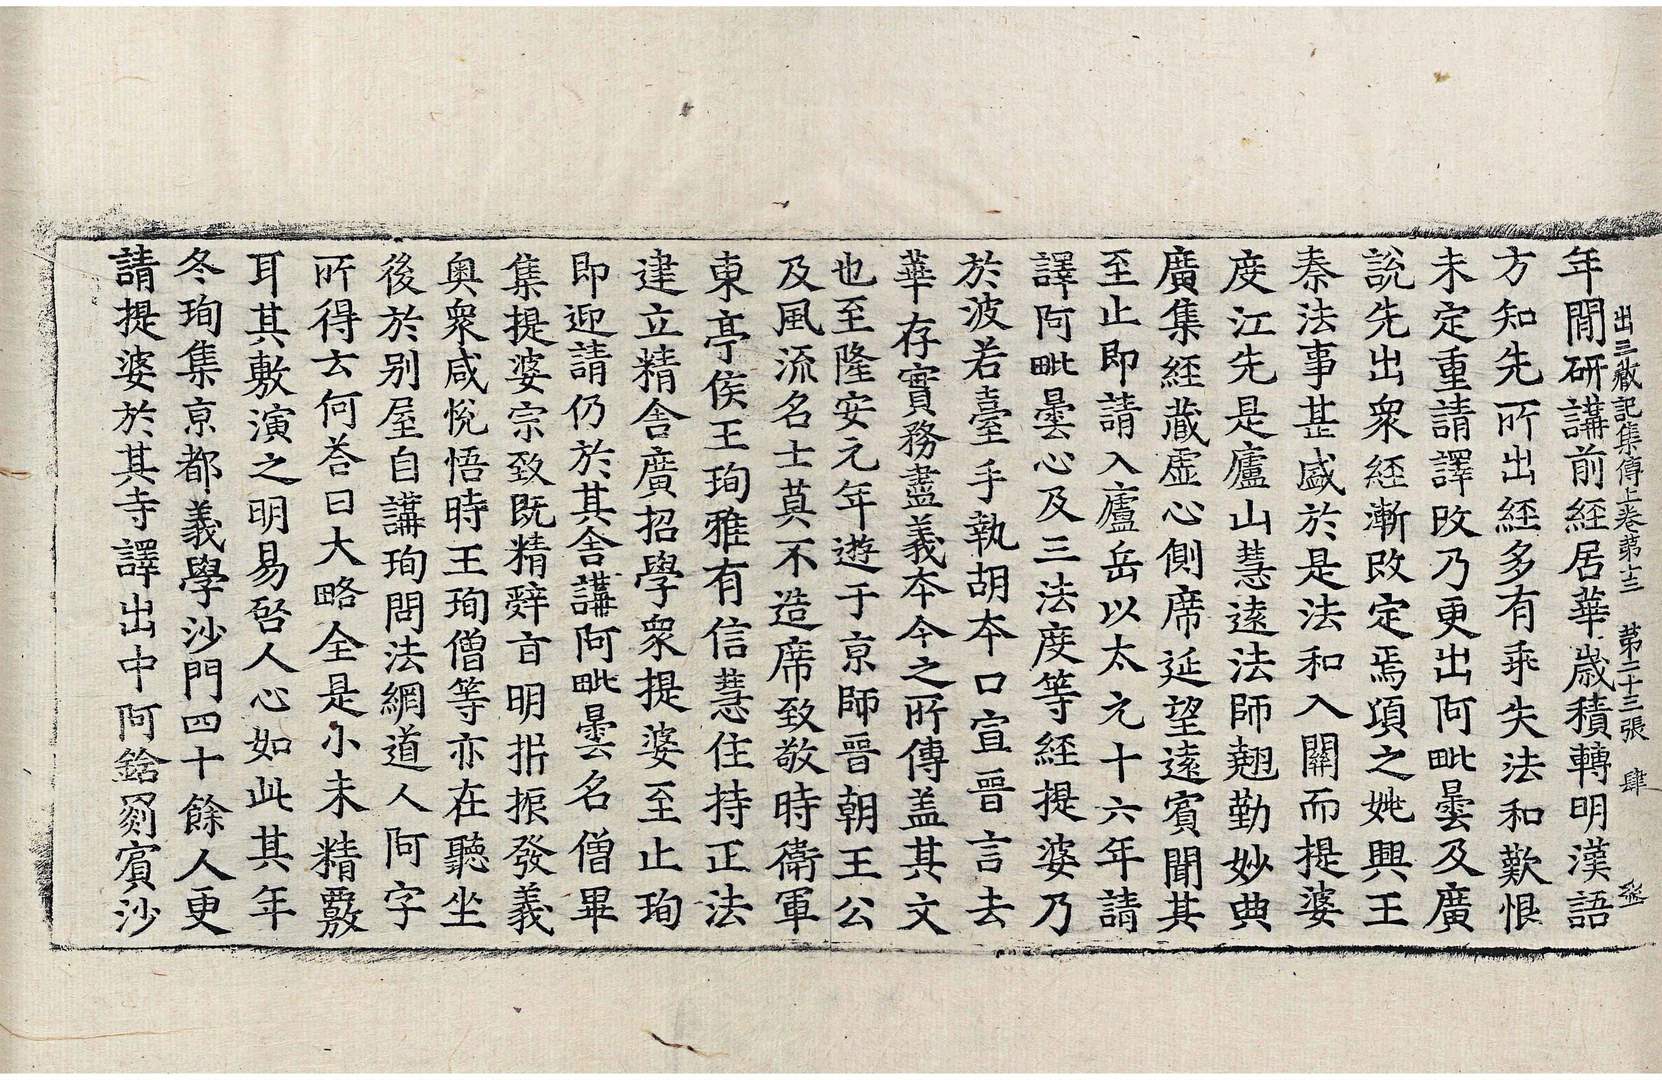 出三藏記集傳上卷第十三 第二十三張 肆
年閒研講前經居華歲積轉明漢語
方知先所出經多有乖失法和歎恨
未定重請譯改乃更出阿毗曇及廣
說先出衆經漸改定焉頃之姚興王
秦法事甚盛於是法和入關而提婆
度江先是廬山慧遠法師翹勤妙典
廣集經藏虛心側席延望遠賓聞其
至止即請入廬岳以太元十六年請
譯阿毗曇心及三法度等經提婆乃
於波若臺手執胡本口宣晉言去
華存實務盡義本今之所傳盖其文
也至隆安元年遊于京師晉朝王公
及風流名士莫不造席致敬時衛軍
東亭侯王珣雅有信慧住持正法
建立精舍廣招學衆提婆至止珣
即迎請仍於其舍講阿毗曇名僧畢
集提婆宗致既精辭旨明折振發義
奥衆咸悅悟時王珣僧等亦在聽坐
後於别屋自講珣問法網道人阿字
所得去何荅曰大略全是小未精覈
耳其敷演之明易啓人心如此其年
冬珣集京都義學沙門四十餘人更
請提婆於其寺譯出中阿鋡罽賓沙